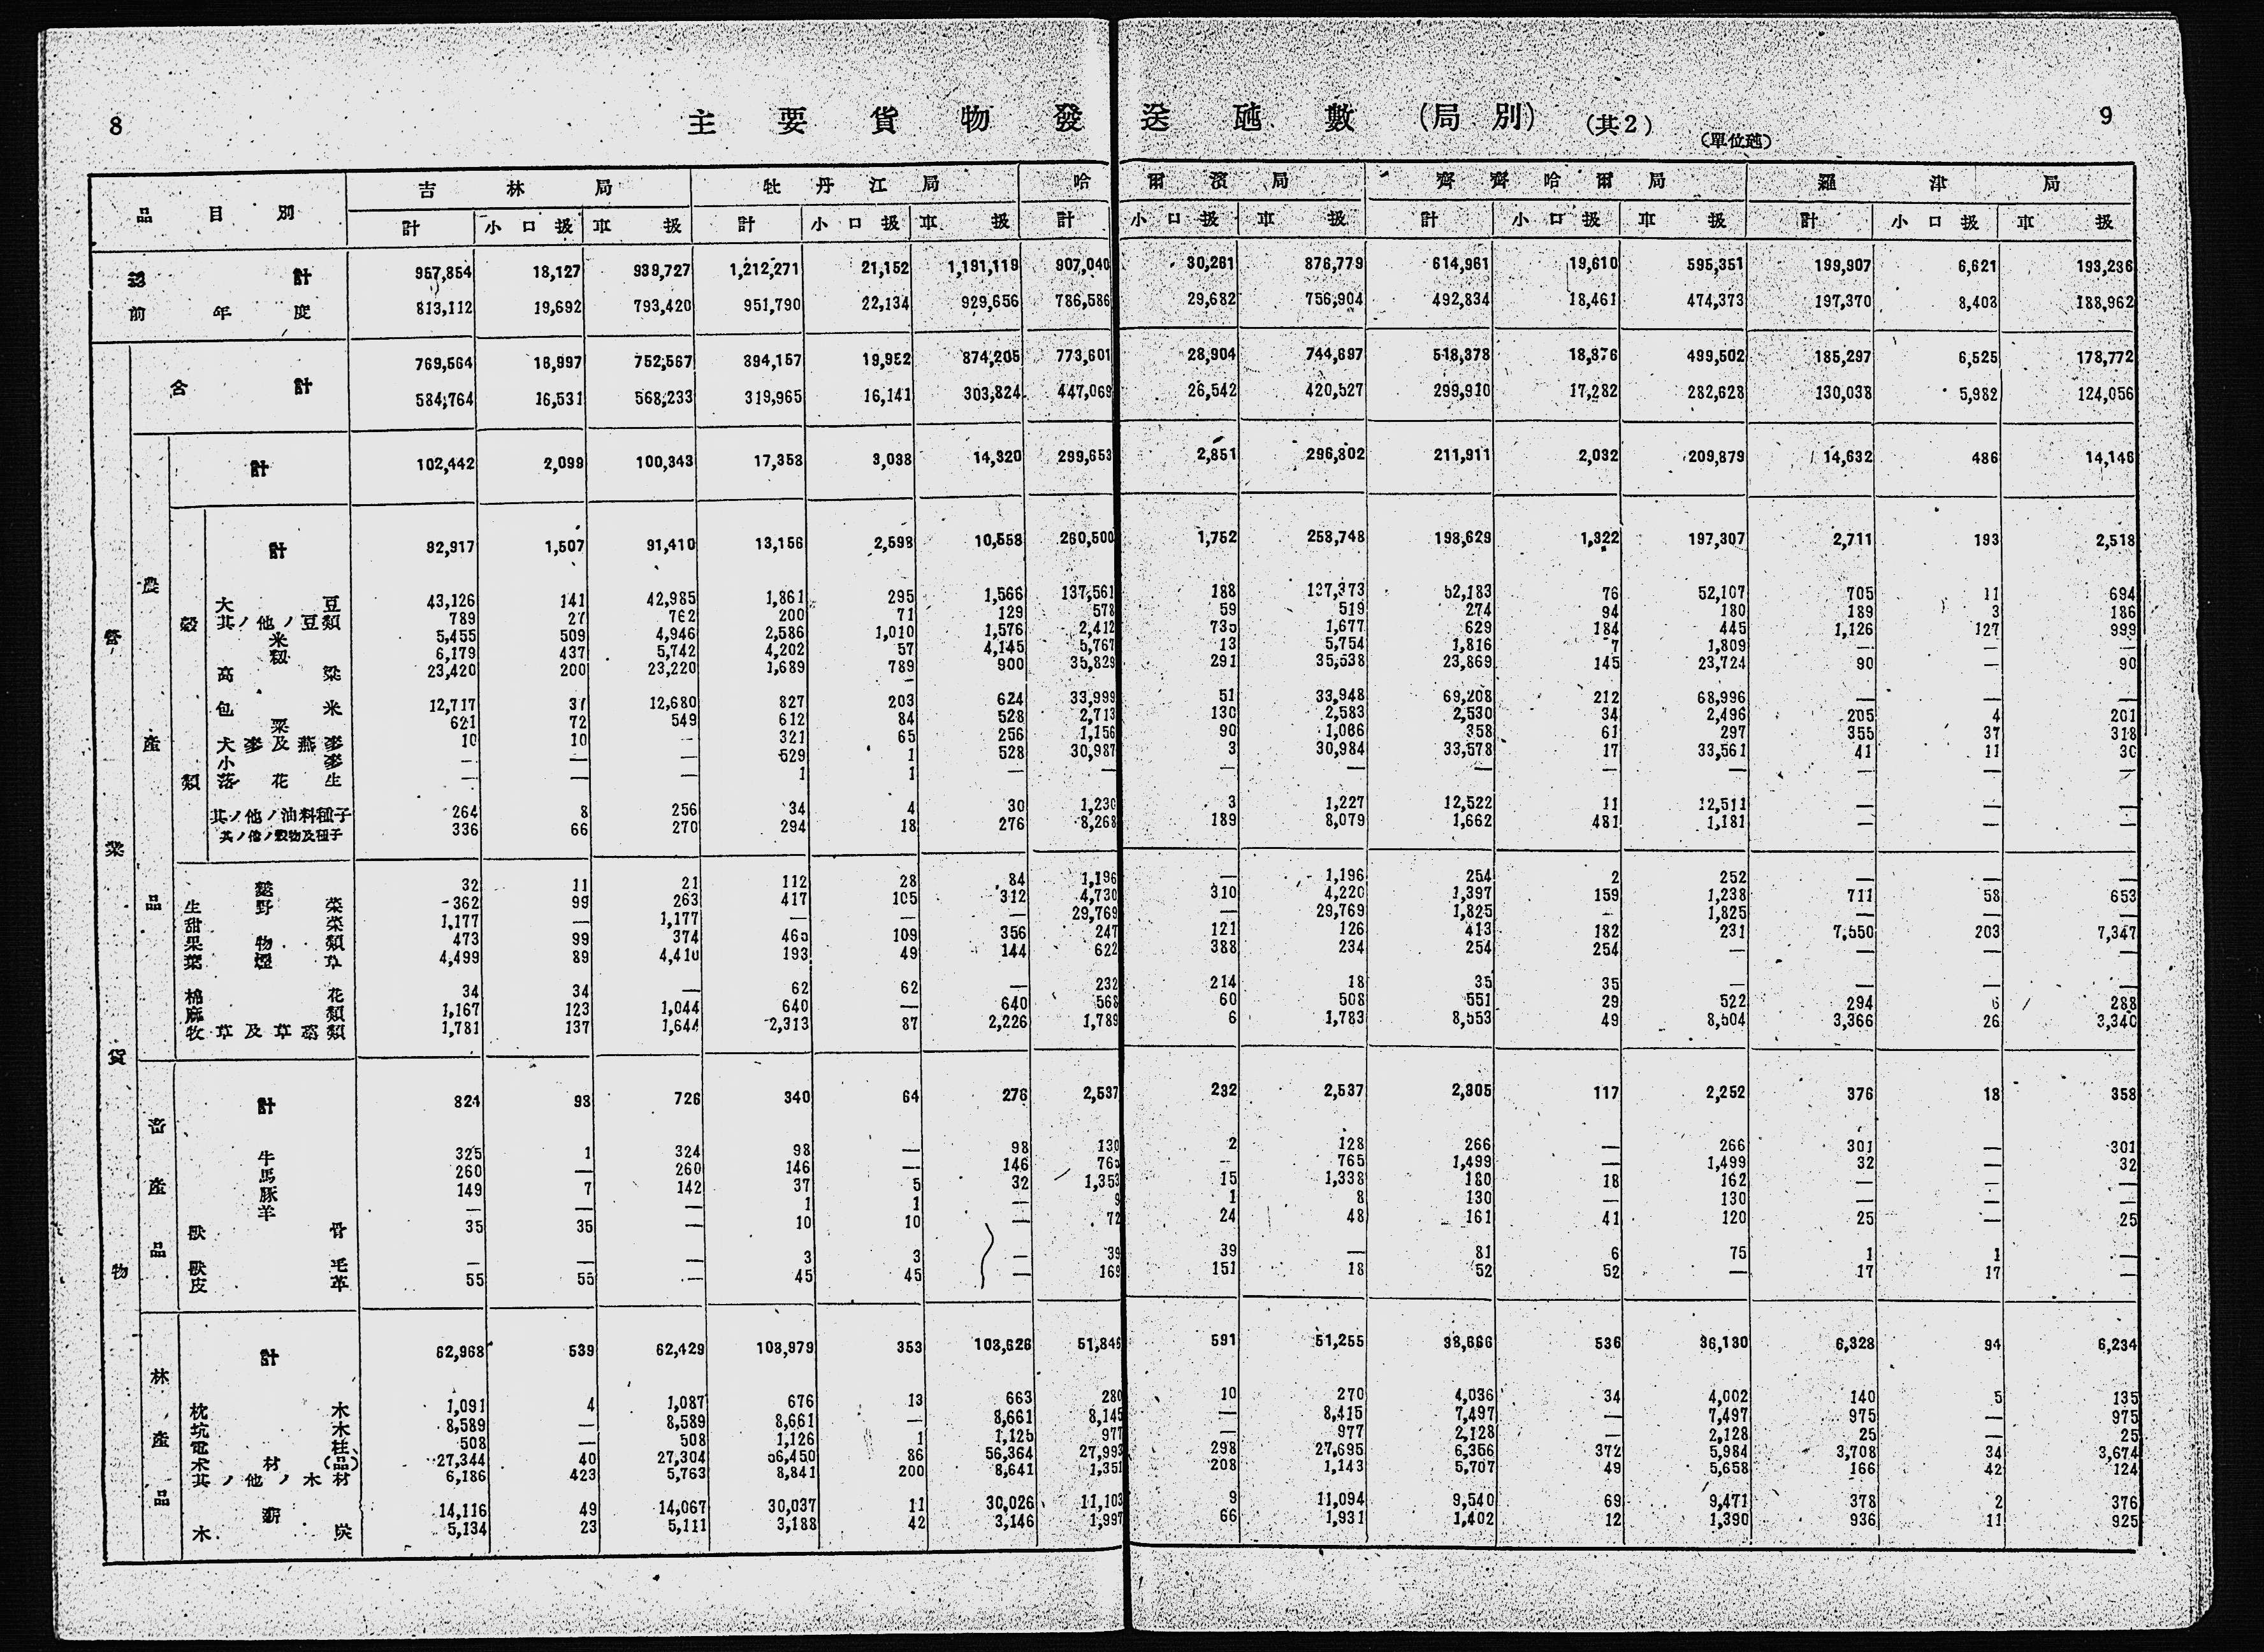 8
主要貨物發送瓲數(局別) (其2)
(單位瓲)
9
品目別 吉林局 牡丹江局 哈爾濱局 齊齊哈爾局 羅津局
計 小口扱 車扱 計 小口扱 車扱 計 小口扱 車扱 計 小口扱 車扱 計 小口扱 車扱
總計 957,854 18,127 939,727 1,212,271 21,152 1,191,119 907,040 30,261 876,779 614,961 19,610 595,351 199,907 6,621 193,286
前年度 813,112 19,692 793,420 951,790 22,134 929,656 786,586 29,682 756,904 492,834 18,461 474,373 197,370 8,408 188,962
營業貨物
合計 769,564 16,997 752,567 894,157 19,952 874,205 773,601 28,904 744,697 518,378 18,876 499,502 185,297 6,525 178,772
584,764 16,531 568,233 319,965 16,141 303,824 447,069 26,542 420,527 299,910 17,282 282,628 130,038 5,982 124,056
農產品
計 102,442 2,099 100,343 17,358 3,038 14,320 299,653 2,851 296,802 211,911 2,032 209,879 14,632 486 14,146
穀類
計 92,917 1,507 91,410 13,156 2,598 10,558 260,500 1,752 258,748 198,629 1,322 197,307 2,711 193 2,518
大豆 43,126 141 42,985 1,861 295 1,566 137,561 188 137,373 52,183 76 52,107 705 11 694
其ノ他ノ豆類 789 27 762 200 71 129 578 59 519 274 94 180 189 3 186
米 5,455 509 4,946 2,586 1,010 1,576 2,412 735 1,677 629 184 445 1,126 127 999
籾 6,179 437 5,742 4,202 57 4,145 5,767 13 5,754 1,816 7 1,809 — — —
高粱 23,420 200 23,220 1,689 789 900 35,829 291 35,538 23,869 145 23,724 90 — 90
包米 12,717 37 12,680 827 203 624 33,999 51 33,948 69,208 212 68,996 — — —
粟 621 72 549 612 84 528 2,713 130 2,583 2,530 34 2,496 205 4 201
大麥及燕麥 10 10 — 321 65 256 1,156 90 1,066 358 61 297 355 37 318
小麥 — — — 529 1 528 30,987 3 30,984 33,578 17 33,561 41 11 30
落花生 — — — 1 1 — — — — — — — — — —
其ノ他ノ油料種子 264 8 256 34 4 30 1,230 3 1,227 12,522 11 12,511 — — —
其ノ他ノ穀物及種子 336 66 270 294 18 276 8,268 189 8,079 1,662 481 1,181 — — —
麩 32 11 21 112 28 84 1,196 — 1,196 254 2 252 — — —
生野菜 362 99 263 417 105 312 4,730 310 4,220 1,397 159 1,238 711 58 653
甜菜 1,177 — 1,177 — — — 29,769 — 29,769 1,825 — 1,825 — — —
果物類 473 99 374 465 109 356 247 121 126 413 182 231 7,550 203 7,347
葉煙草 4,499 89 4,410 193 49 144 622 388 234 254 254 — — — —
棉花 34 34 — 62 62 — 232 214 18 35 35 — — — —
麻類 1,167 123 1,044 640 — 640 568 60 508 551 29 522 294 6 288
牧草及草藁類 1,781 137 1,644 2,313 87 2,226 1,789 6 1,783 8,553 49 8,504 3,366 26 3,340
畜產品
計 824 98 726 340 64 276 2,537 232 2,537 2,305 117 2,252 376 18 358
牛 325 1 324 98 — 98 130 2 128 266 — 266 301 — 301
馬 260 — 260 146 — 146 765 — 765 1,499 — 1,499 32 — 32
豚 149 7 142 37 5 32 1,353 15 1,338 180 18 162 — — —
羊 — — — 1 1 — 9 1 8 130 — 130 — — —
獸骨 35 35 — 10 10 — 72 24 48 161 41 120 25 — 25
獸毛 — — — 3 3 — 39 39 — 81 6 75 1 1 —
皮革 55 55 — 45 45 — 169 151 18 52 52 — 17 17 —
林產品
計 62,968 539 62,429 108,979 353 108,626 51,846 591 51,255 36,666 536 36,130 6,328 94 6,234
枕木 1,091 4 1,087 676 13 663 280 10 270 4,036 34 4,002 140 5 135
坑木 8,589 — 8,589 8,661 — 8,661 8,145 — 8,415 7,497 — 7,497 975 — 975
電柱 508 — 508 1,126 1 1,125 977 — 977 2,128 — 2,128 25 — 25
木材(品) 27,344 40 27,304 56,450 86 56,364 27,993 298 27,695 6,356 372 5,984 3,708 34 3,674
其ノ他ノ木材 6,186 423 5,763 8,841 200 8,641 1,351 208 1,143 5,707 49 5,658 166 42 124
薪 14,116 49 14,067 30,037 11 30,026 11,103 9 11,094 9,540 69 9,471 378 2 376
木炭 5,134 23 5,111 3,188 42 3,146 1,997 66 1,931 1,402 12 1,390 936 11 925